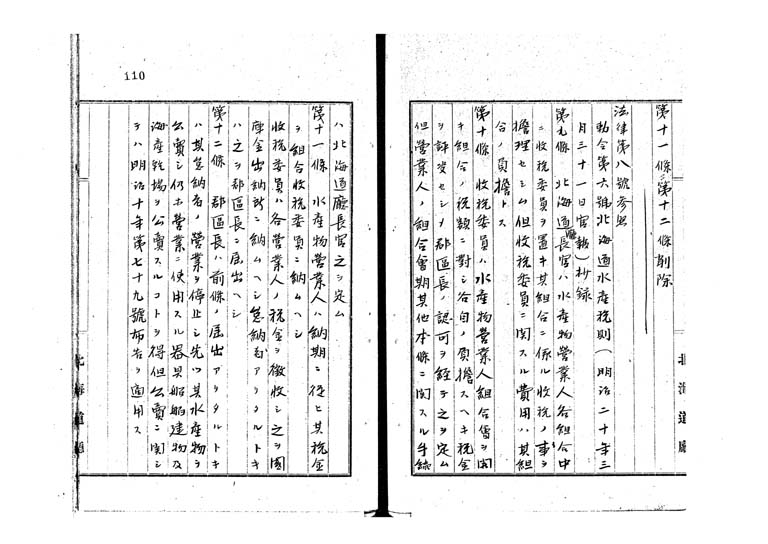 第十一條第十二條削除
法律第八號参照
勅令第六號北海道水産税則(明治二十年三
月三十一日官報)抄録
第九條 北海道廳長官ハ水産物營業人各組合中
ニ收税委員ヲ置キ其組合ニ係ル收税ノ事ヲ
擔理セシム但收税委員ニ関スル費用ハ其組
合ノ負擔トス
第十條 收税委員ハ水産物營業人組合會ヲ開
キ組合ノ税額ニ對シ各自ノ負擔スヘキ税金
ヲ評定セシメ郡區長ノ認可ヲ経テ之ヲ定ム
但營業人ノ組合會期其他本條ニ関スル手続
ハ北海道廳長官之ヲ定ム
第十一條 水産物營業人ハ納期ニ從ヒ其税金
ヲ組合收税委員ニ納ムヘシ
收税委員ハ各營業人ノ税金ヲ徴收シ之ヲ國
庫金出納所ニ納ムヘシ怠納者アリタルトキ
ハ之ヲ郡區長ニ届出ヘシ
第十二條 郡區長ハ前條ノ届出アリタルトキ
ハ其怠納者ノ營業ヲ停止シ先ツ其水産物ヲ
公賣シ何ホ營業ニ使用スル器具船舶建物及
海産乾場ヲ公賣スルコトヲ得但公賣ニ関シ
テハ明治十年第七十九號布告ヲ適用ス
110
北海道廳
北海道廳